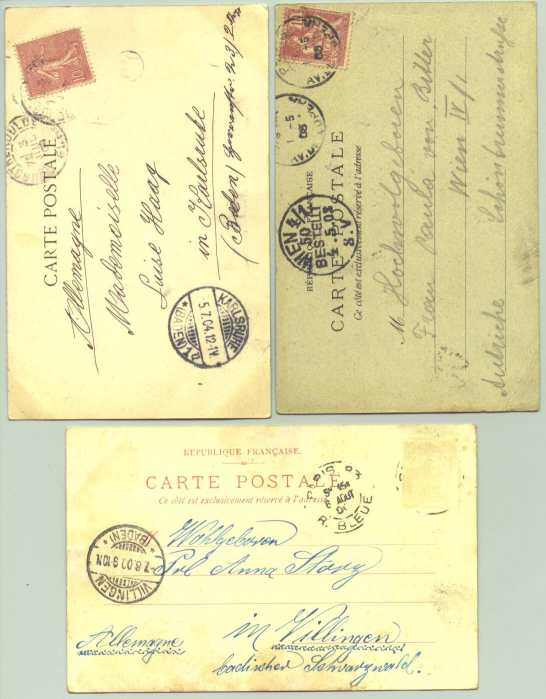 10
CARTE POSTALE
Allemagne
Mademoiselle
Luise Haag
in Karlsruhe
(Baden)
KARLSRUHE
5.7.04.12-1V.
* (BADEN) *
RÉPUBLIQUE FRANÇAISE
CARTE POSTALE
Ce côté est exclusivement réservé à l'adresse
WIEN 4/1
50
BESTELLT
4.5.03
8.V
M. Hochwolgeboren
Frau Paula von
Wien IV/1
Autriche
RÉPUBLIQUE FRANÇAISE.
CARTE POSTALE
Ce côté est exclusivement réservé à l'adresse
PARIS
AOUT
R. BLEUE
VILLINGEN
7.8.00.9-10N.
* (BADEN) *
Wohlgeboren
Frl. Anna
in Villingen
Allemagne
badischer Schwarzwald.